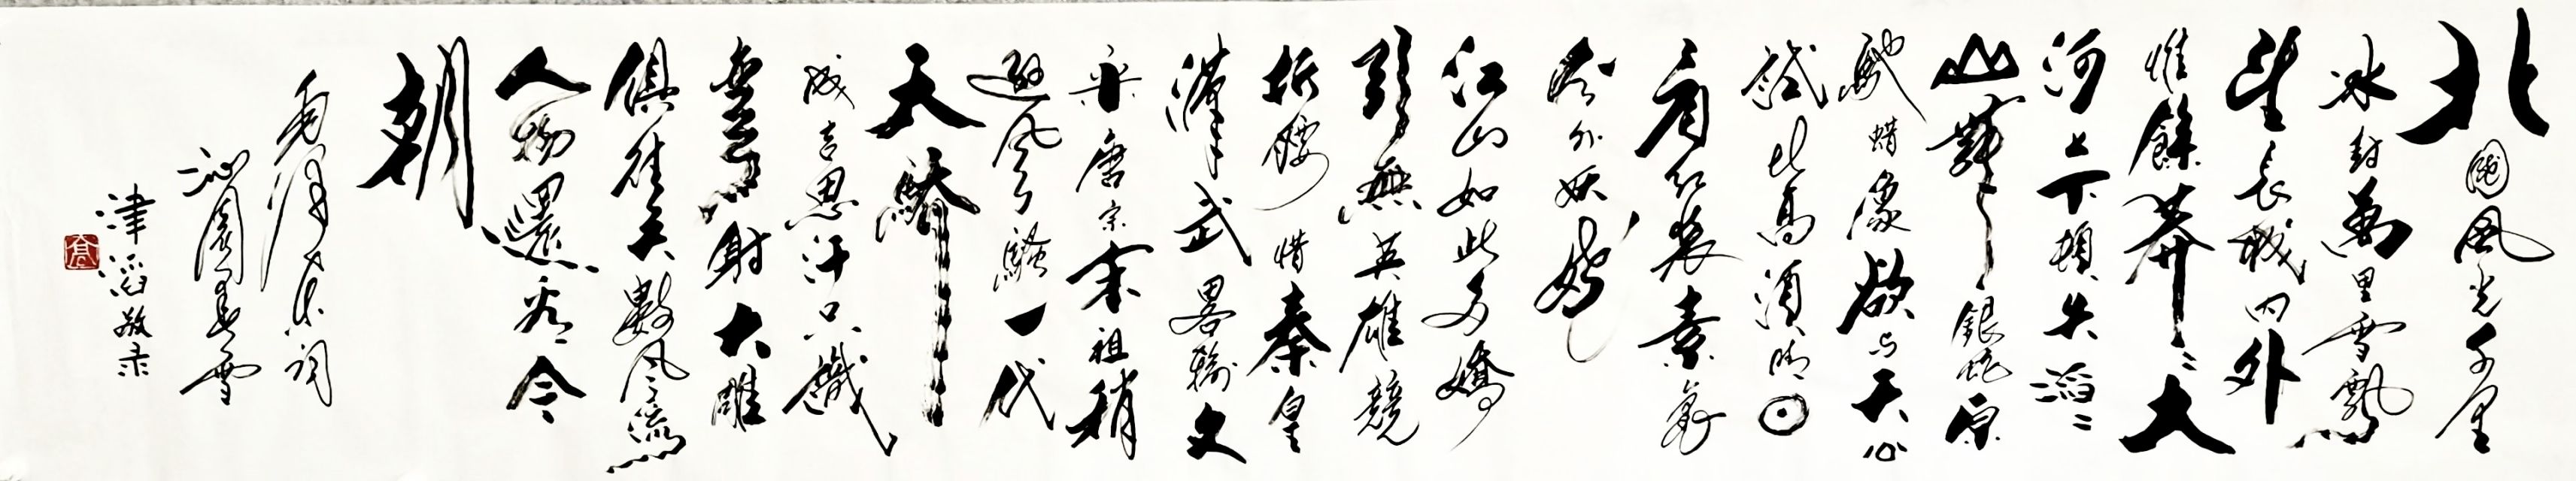 北國風光千里
冰封萬里雪飄
望長城內外
惟餘莽〻大
河上下頓失滔〻
山舞銀蛇原
馳蜡像欲与天公
試比高須晴日
看紅裝素裹
分外妖嬈
江山如此多嬌
引無英雄競
折腰惜秦皇
漢武畧輸文
采唐宗宋祖稍
遜風騷一代
天驕
成吉思汗只識
彎弓射大雕
俱往矣數風流
人物還看今
朝
毛澤東詞
沁園春雪
津滔敬录